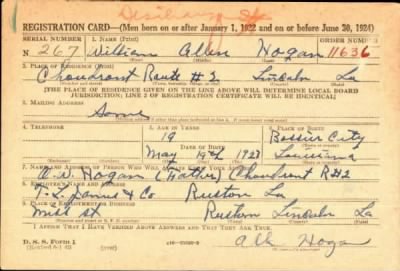 REGISTRATION CARD—(Men born on or after January 1, 1922 and on or before June 30, 1924)
SERIAL NUMBER 1. NAME (Print) ORDER NUMBER
N 267 William Allen Hogan 11636
2. PLACE OF RESIDENCE (Print)
Choudront Route #2 Lincoln La
[THE PLACE OF RESIDENCE GIVEN ON THE LINE ABOVE WILL DETERMINE LOCAL BOARD
JURISDICTION; LINE 2 OF REGISTRATION CERTIFICATE WILL BE IDENTICAL]
3. MAILING ADDRESS
Same
4. TELEPHONE 5. AGE IN YEARS 6. PLACE OF BIRTH
19 Bossier City
DATE OF BIRTH
May 19th 1923 Louisiana
7. NAME AND ADDRESS OF PERSON WHO WILL ALWAYS KNOW YOUR ADDRESS
Hogan (Father) Choudront R#2
8. EMPLOYER'S NAME AND ADDRESS
T. L. James & Co. Ruston La
9. PLACE OF EMPLOYMENT OR BUSINESS
Mill st Ruston Lincoln La
I AFFIRM THAT I HAVE VERIFIED ABOVE ANSWERS AND THAT THEY ARE TRUE.
D. S. S. Form 1
Hogan